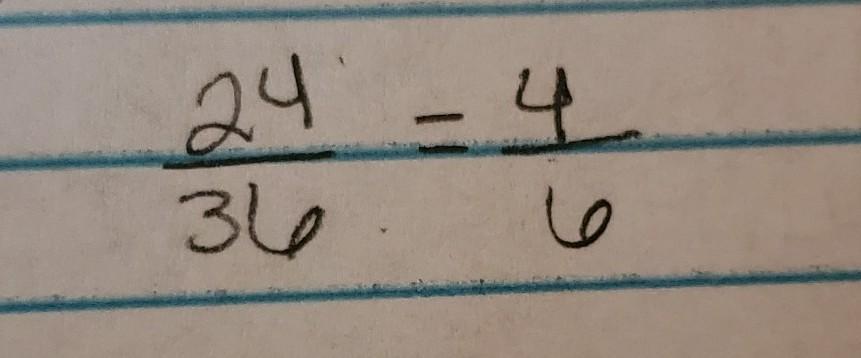 24/36 = 4/6